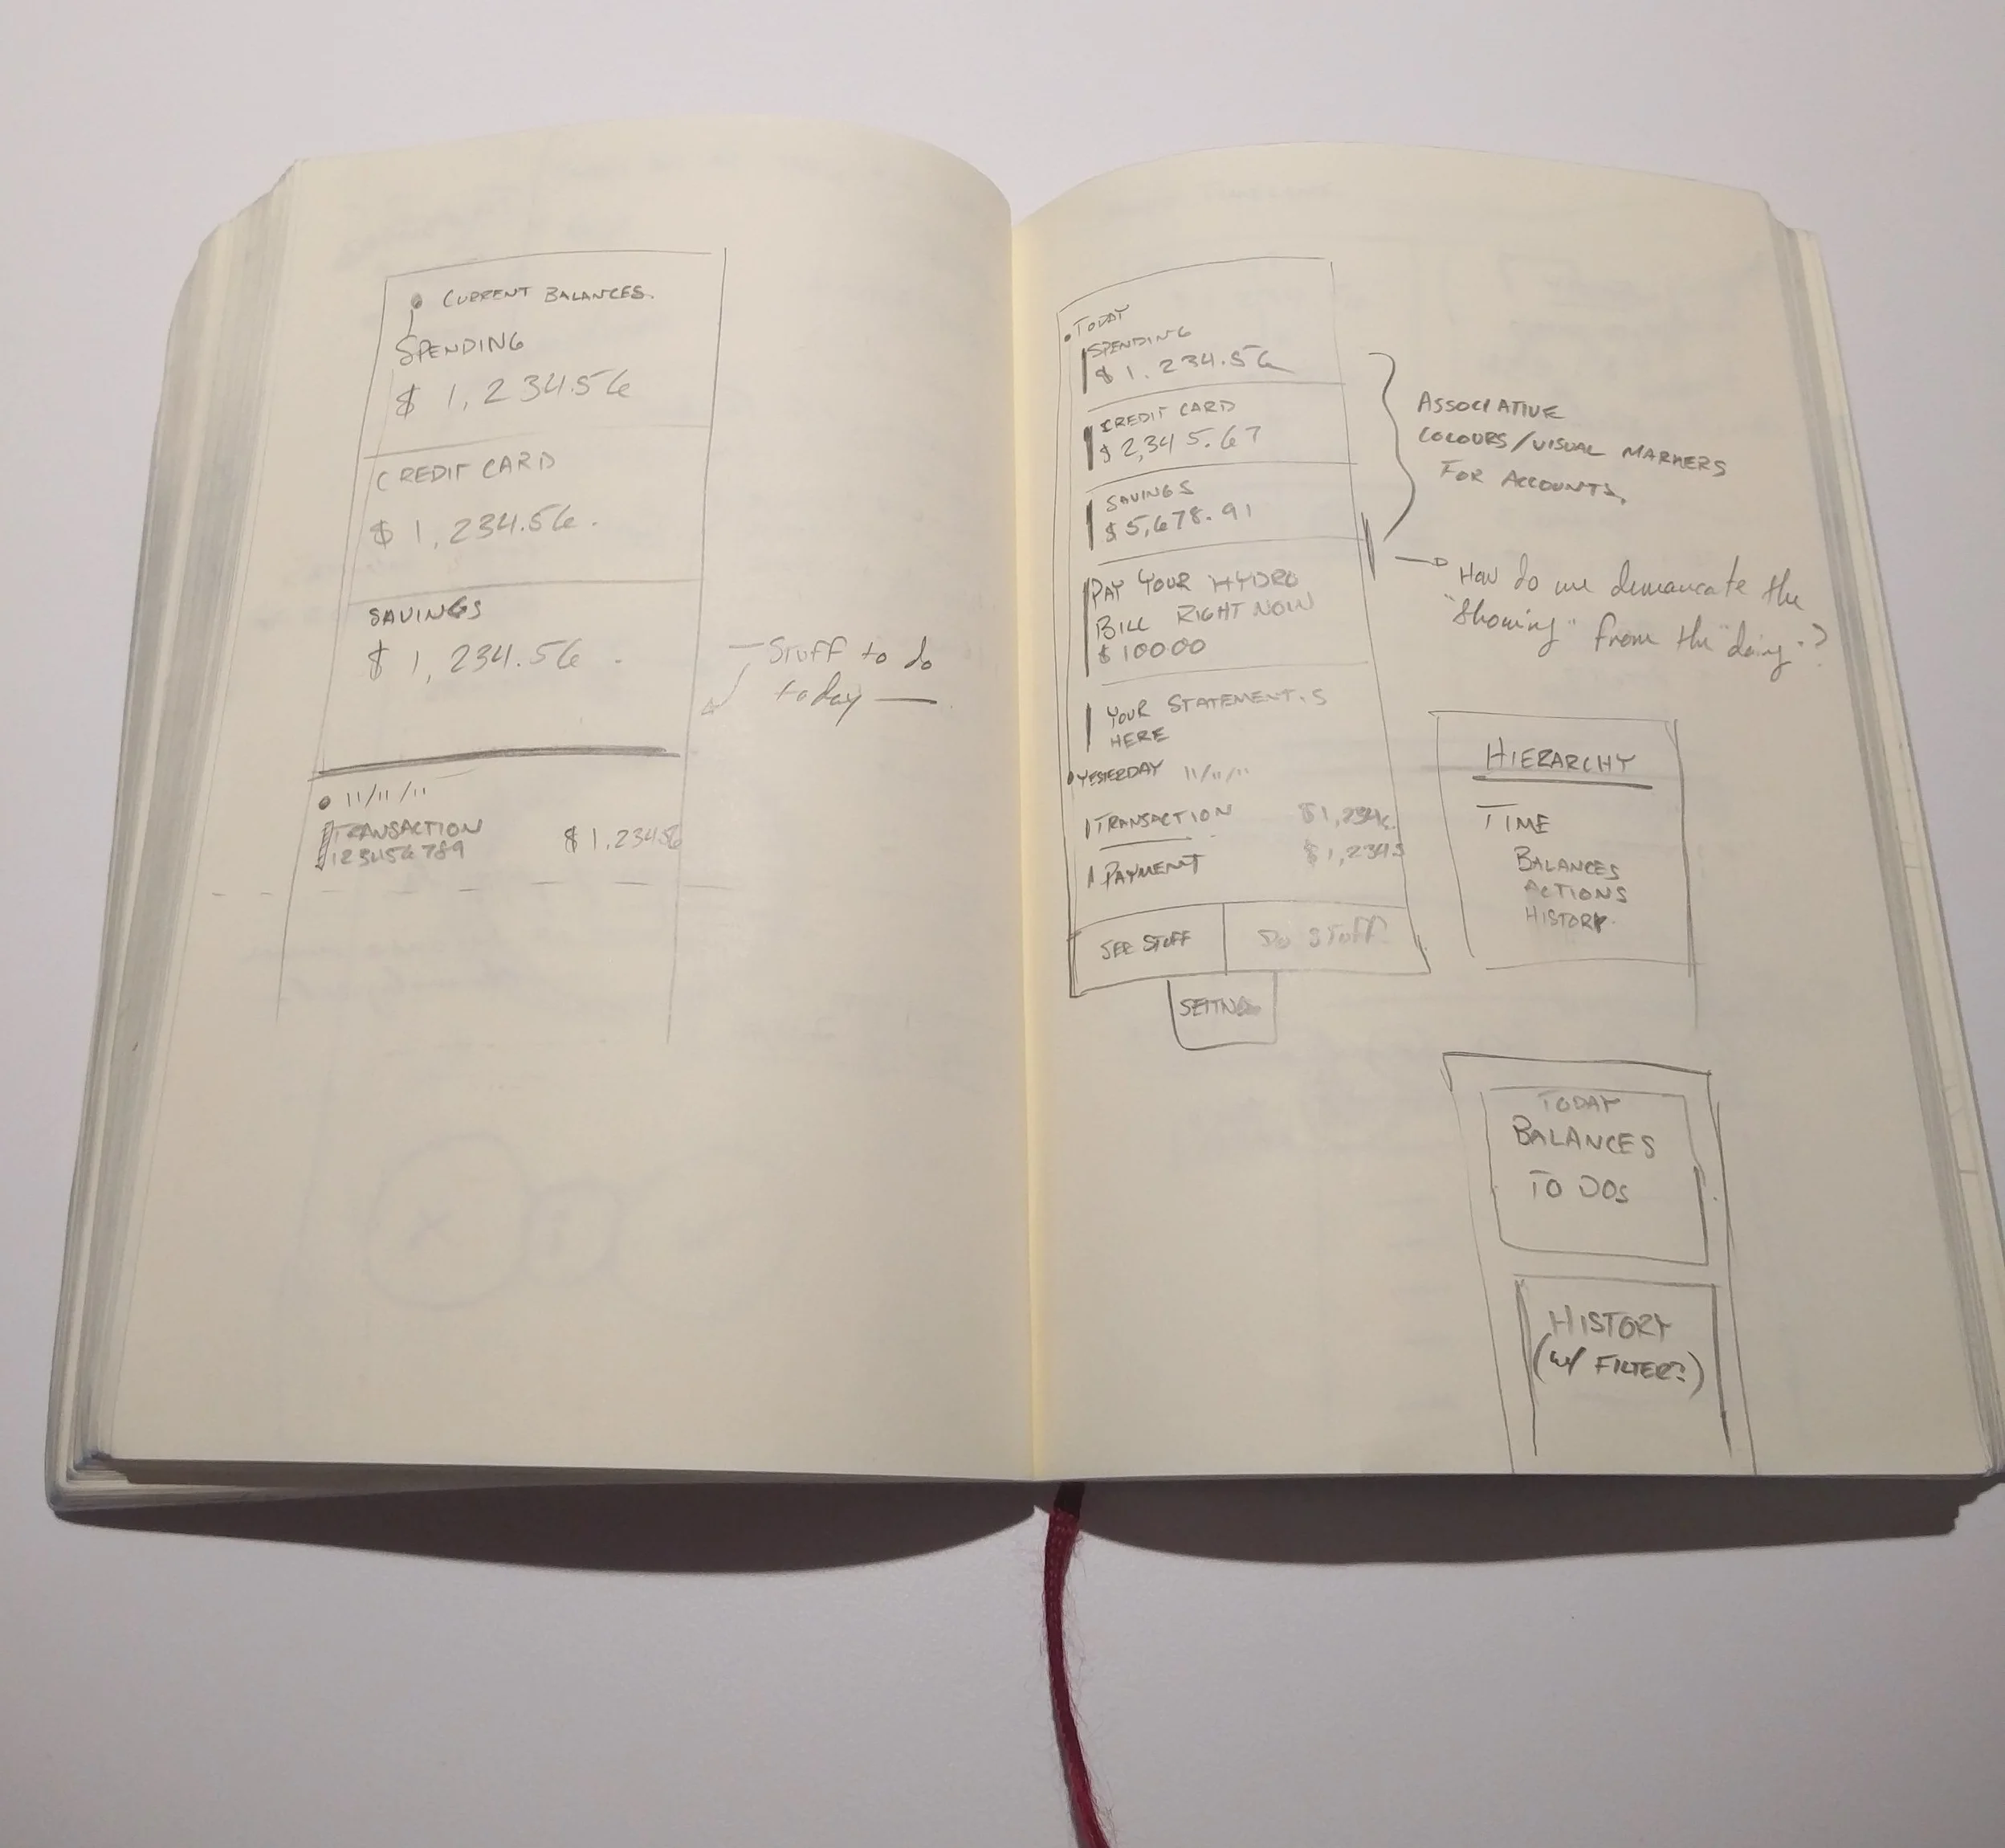 CURRENT BALANCES.
SPENDING
$ 1,234.56
CREDIT CARD
$ 1,234.56.
SAVINGS
$ 1,234.56
Stuff to do
today
11/11/11
TRANSACTION
123456789
$ 1,23456
TODAY
SPENDING
$ 1.234.56
CREDIT CARD
$ 2,345.67
SAVINGS
$ 5,678.91
PAY YOUR HYDRO
BILL RIGHT NOW
$ 10000
YOUR STATEMENT.S
HERE
YESTERDAY 11/11/11
TRANSACTION
PAYMENT $1,2345
SEE STUFF
DO STUFF
ASSOCIATIVE
COLOURS/VISUAL MARKERS
FOR ACCOUNTS.
How do we demarcate the
"showing" from the "doing"?
HIERARCHY
TIME
BALANCES
ACTIONS
HISTORY.
TODAY
BALANCES
TO DOS
HISTORY
(w/ FILTER?)